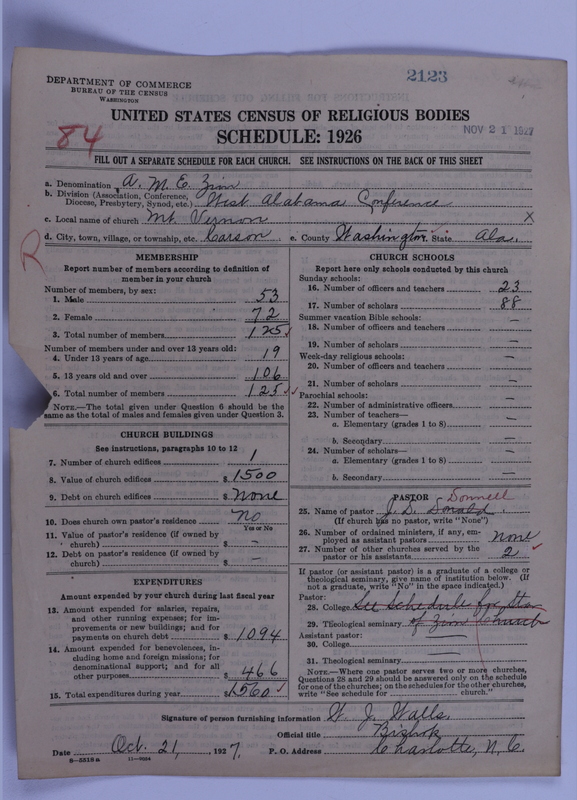 2123
DEPARTMENT OF COMMERCE
BUREAU OF THE CENSUS
WASHINGTON
UNITED STATES CENSUS OF RELIGIOUS BODIES
SCHEDULE: 1926
NOV 21 1927
84
FILL OUT A SEPARATE SCHEDULE FOR EACH CHURCH. SEE INSTRUCTIONS ON THE BACK OF THIS SHEET
a. Denomination A. M. E. Zion
b. Division (Association, Conference, Diocese, Presbytery, Synod, etc.) West Alabama Conference
c. Local name of church Mt. Vernon X
d. City, town, village, or township, etc. Carson e. County Washington State Ala.
R
MEMBERSHIP
Report number of members according to definition of
member in your church
Number of members, by sex:
1. Male 53
2. Female 72
3. Total number of members 125
Number of members under and over 13 years old:
4. Under 13 years of age 19
5. 13 years old and over 106
6. Total number of members 125
NOTE.—The total given under Question 6 should be the
same as the total of males and females given under Question 3.
CHURCH BUILDINGS
See instructions, paragraphs 10 to 12
7. Number of church edifices 1
8. Value of church edifices $ 1500
9. Debt on church edifices $ None
10. Does church own pastor's residence No
Yes or No
11. Value of pastor's residence (if owned by
church) $ —
12. Debt on pastor's residence (if owned by
church) $ —
EXPENDITURES
Amount expended by your church during last fiscal year
13. Amount expended for salaries, repairs,
and other running expenses; for im-
provements or new buildings; and for
payments on church debt $ 1094
14. Amount expended for benevolences, in-
cluding home and foreign missions; for
denominational support; and for all
other purposes $ 466
15. Total expenditures during year $ 1560
CHURCH SCHOOLS
Report here only schools conducted by this church
Sunday schools:
16. Number of officers and teachers 23
17. Number of scholars 88
Summer vacation Bible schools:
18. Number of officers and teachers —
19. Number of scholars —
Week-day religious schools:
20. Number of officers and teachers —
21. Number of scholars —
Parochial schools:
22. Number of administrative officers —
23. Number of teachers—
a. Elementary (grades 1 to 8) —
b. Secondary —
24. Number of scholars—
a. Elementary (grades 1 to 8) —
b. Secondary —
PASTOR
Donnell
25. Name of pastor J. D. Donald
(If church has no pastor, write "None")
26. Number of ordained ministers, if any, em-
ployed as assistant pastors None
27. Number of other churches served by the
pastor or his assistants 2
If pastor (or assistant pastor) is a graduate of a college or
theological seminary, give name of institution below. (If
not a graduate, write "No" in the space indicated.)
Pastor:
28. College See schedule for
29. Theological seminary of Zion Church
Assistant pastor:
30. College —
31. Theological seminary —
NOTE.—Where one pastor serves two or more churches,
Questions 28 and 29 should be answered only on the schedule
for one of the churches; on the schedules for the other churches,
write "See schedule for church."
Signature of person furnishing information W. J. Walls
Official title Bishop
Date Oct. 21, 1927. P. O. Address Charlotte, N. C.
8—5518a 11—9094